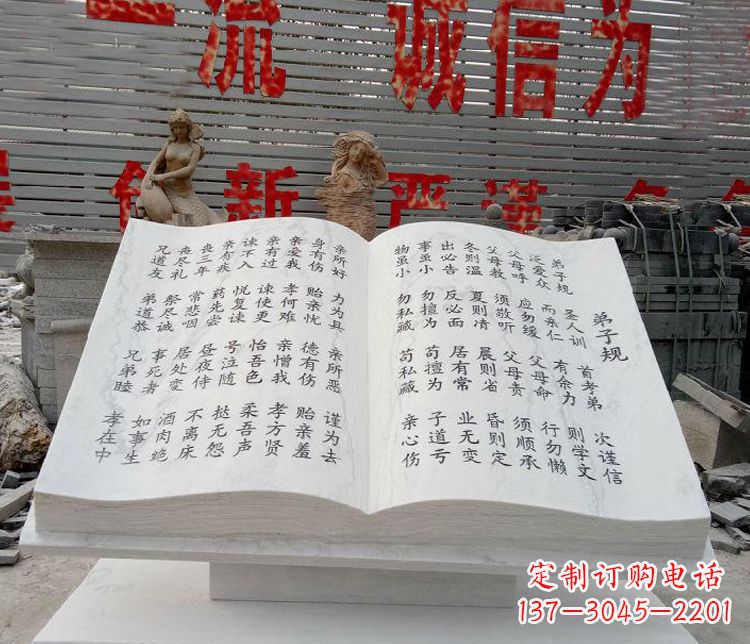 一流 诚信为
创新 严谨
弟子规
弟子规 圣人训 首孝弟 次谨信
泛爱众 而亲仁 有余力 则学文
父母呼 应勿缓 父母命 行勿懒
父母教 须敬听 父母责 须顺承
冬则温 夏则凊 晨则省 昏则定
出必告 反必面 居有常 业无变
事虽小 勿擅为 苟擅为 子道亏
物虽小 勿私藏 苟私藏 亲心伤
亲所好 力为具 亲所恶 谨为去
身有伤 贻亲忧 德有伤 贻亲羞
亲爱我 孝何难 亲憎我 孝方贤
亲有过 谏使更 怡吾色 柔吾声
谏不入 悦复谏 号泣随 挞无怨
亲有疾 药先尝 昼夜侍 不离床
丧三年 常悲咽 居处变 酒肉绝
丧尽礼 祭尽诚 事死者 如事生
兄道友 弟道恭 兄弟睦 孝在中
定制订购电话
137-3045-2201